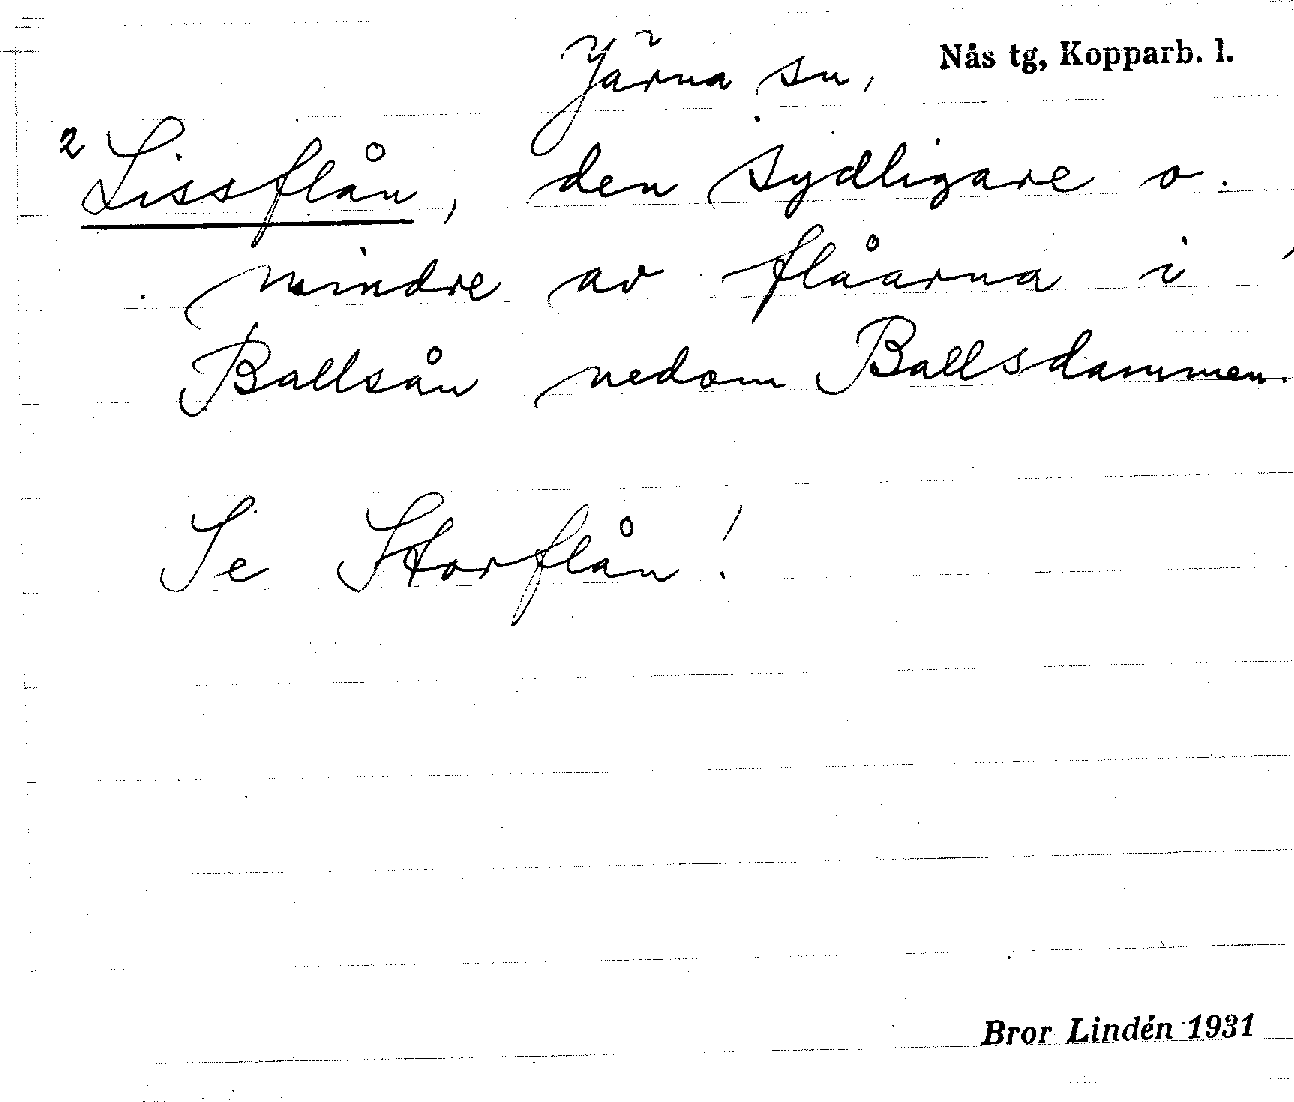 Järna sn, Nås tg, Kopparb. l.
2 Lissflån, den sydligare o.
mindre av flåarna i
Ballsån nedom Ballsdammen.
Se Storflån!
Bror Lindén 1931